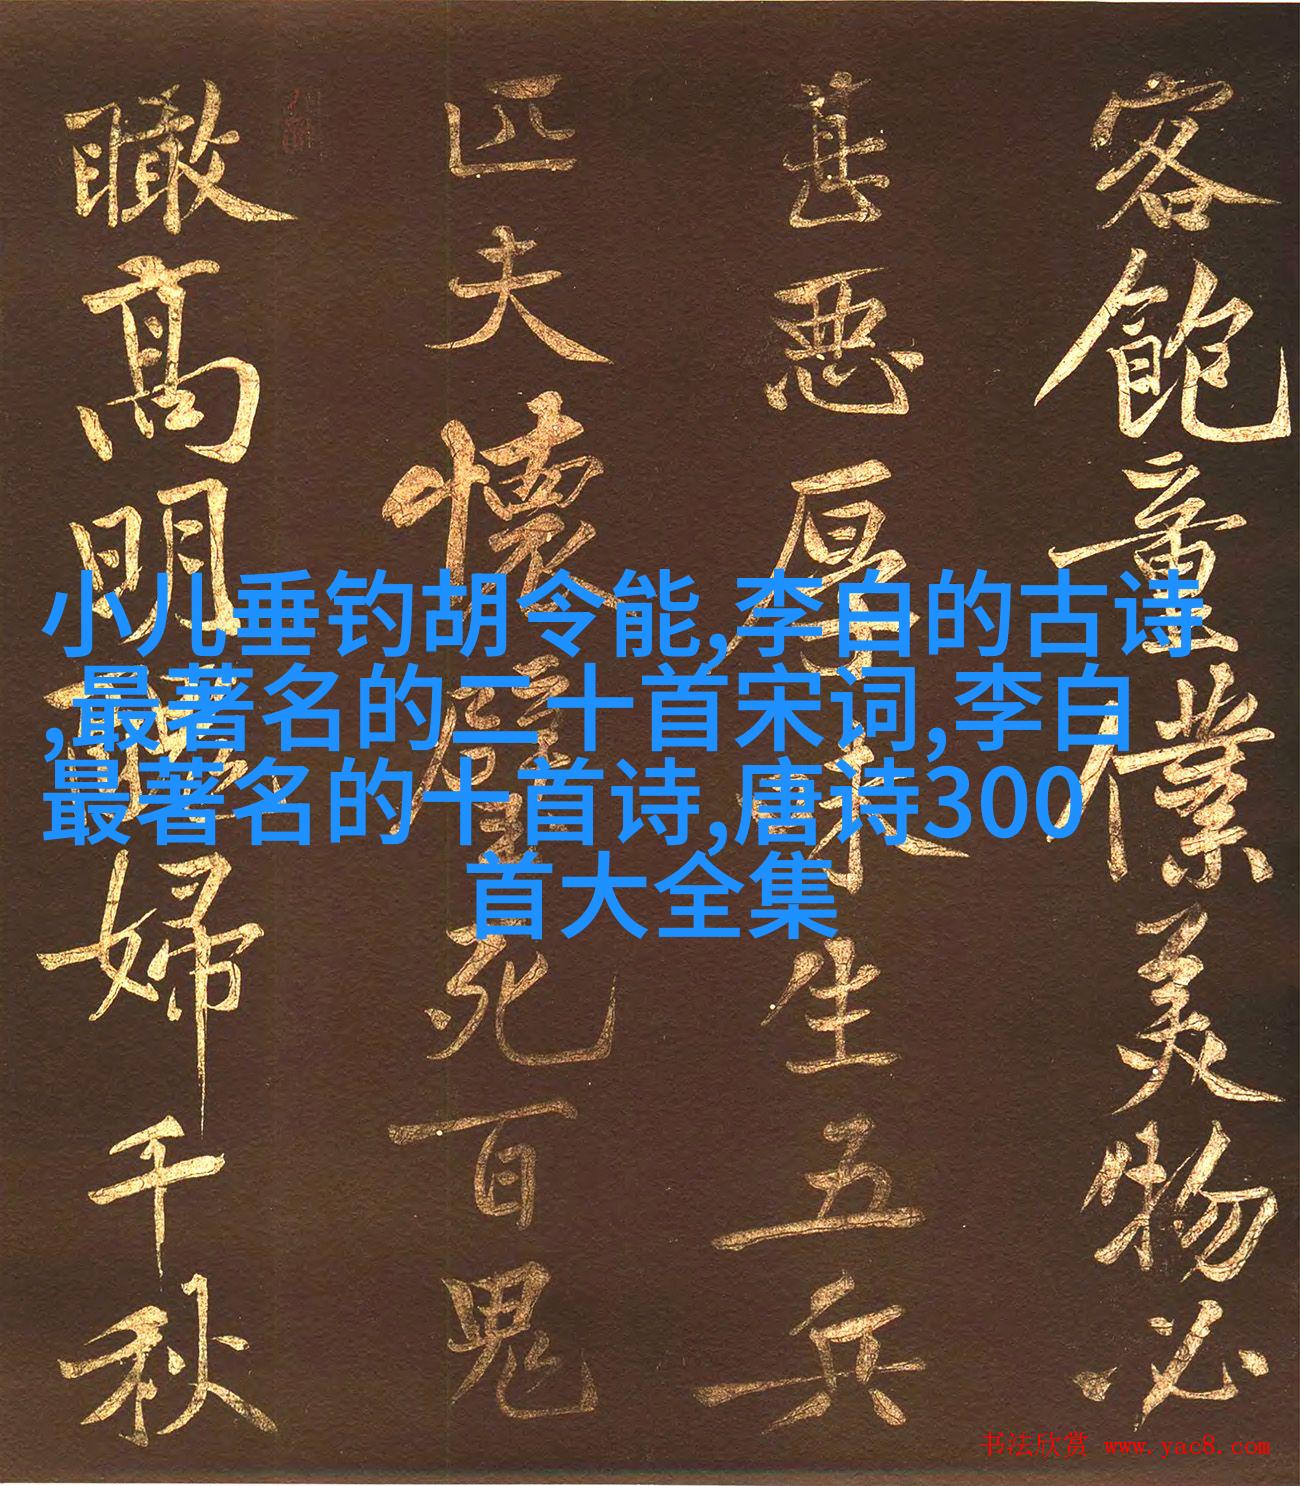 客飽童僕美物必
甚悪厚味生五兵
匹夫懷璧死百鬼
瞰高明婦千秋
小儿垂钓胡令能,李白的古诗
,最著名的二十首宋词,李白
最著名的十首诗,唐诗300
首大全集
书法欣赏 www.yac8.com